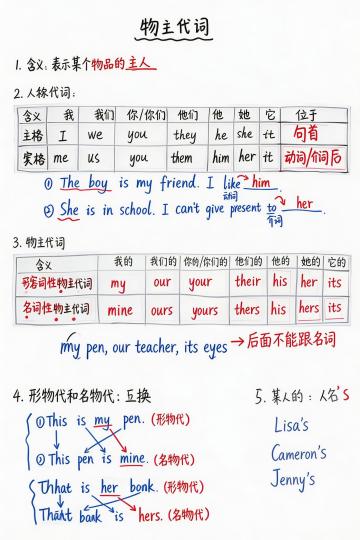 物主代词
1. 含义: 表示某个物品的主人
2. 人称代词:
含义 我 我们 你/你们 他们 他 她 它 位于
主格 I we you they he she it 句首
宾格 me us you them him her it 动词/介词后
① The boy is my friend. I like him.
动词
② She is in school. I can't give present to her.
介词
3. 物主代词
含义 我的 我们的 你的/你们的 他们的 他的 她的 它的
形容词性物主代词 my our your their his her its
名词性物主代词 mine ours yours thers his hers its
my pen, our teacher, its eyes → 后面不能跟名词
4. 形物代和名物代: 互换
① This is my pen. (形物代)
② This pen is mine. (名物代)
is her bonk. (形物代)
bank is hers. (名物代)
5. 某人的: 人名's
Lisa's
Cameron's
Jenny's